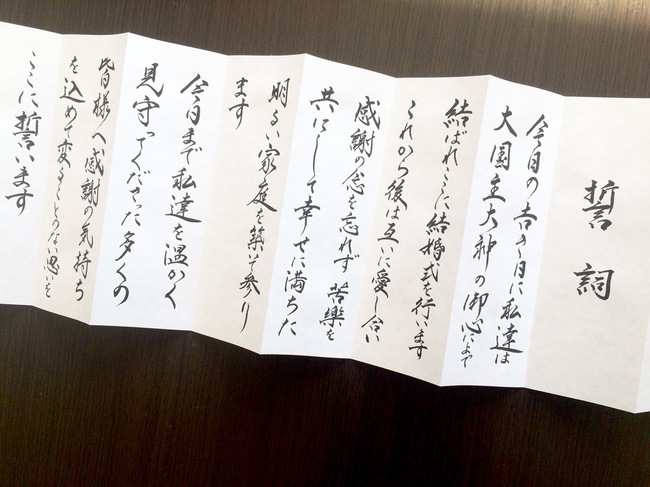 誓詞
今日の吉き日に私達は
大国主大神の御心によって
結ばれここに結婚式を行います
これから後は互いに愛し合い
感謝の念を忘れず苦楽を
共にして幸せに満ちた
明るい家庭を築いて参り
ます
今日まで私達を温かく
見守ってくださった多くの
皆様へ感謝の気持ち
を込めて変ることのない思いを
ここに誓います